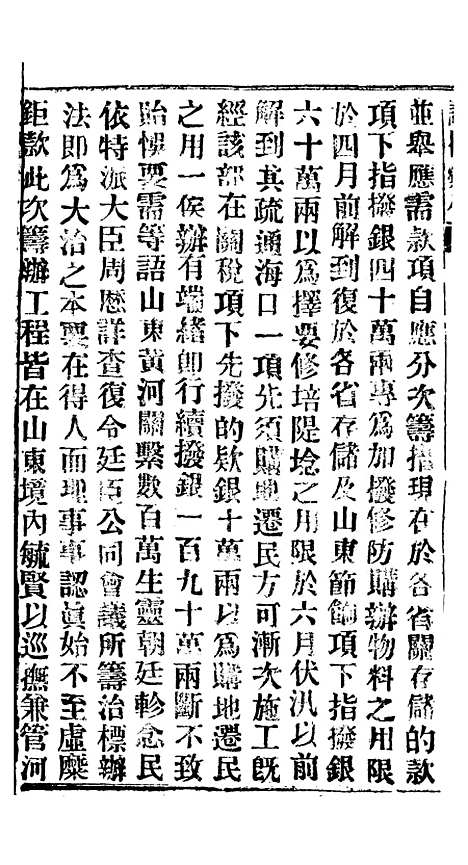 並舉應需款項自應分次籌措現在於各省關存儲的款
項下指撥銀四十萬兩專爲加撥修防購辦物料之用限
於四月前解到復於各省存儲及山東節餉項下指撥銀
六十萬兩以爲擇要修培隄埝之用限於六月伏汛以前
解到其疏通海口一項先須購地遷民方可漸次施工旣
經該部在關稅項下先撥的款銀十萬兩以爲購地遷民
之用一俟辦有端緒卽行續撥銀一百九十萬兩斷不致
貽悞要需等語山東黃河關繫數百萬生靈朝廷軫念民
依特派大臣周歷詳查復令廷臣公同會議所籌治標辦
法卽爲大治之本要在得人而理事事認眞始不至虛糜
鉅款此次籌辦工程皆在山東境內毓賢以巡撫兼管河